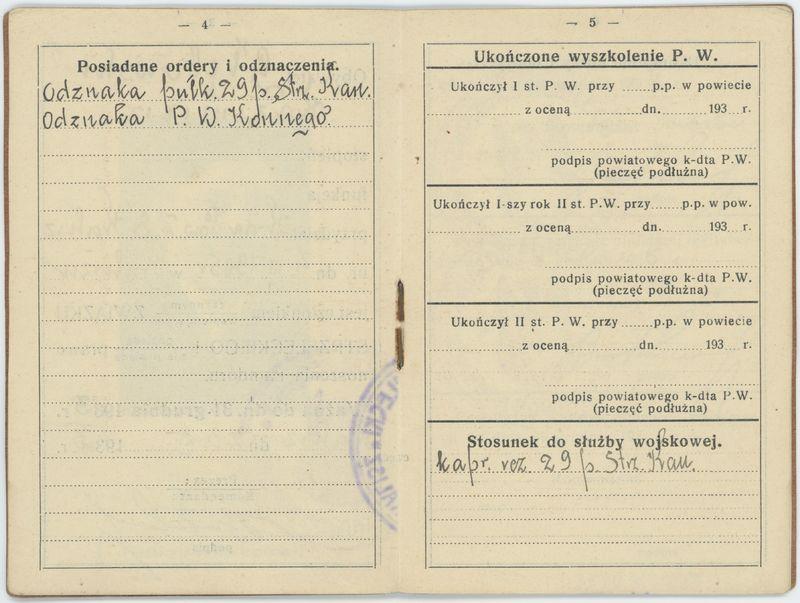 — 4 —
Posiadane ordery i odznaczenia.
Odznaka pułk. 29 p. Strz. Kan.
Odznaka P. W. Konnego.
— 5 —
Ukończone wyszkolenie P. W.
Ukończył I st. P. W. przy ....... p.p. w powiecie
z oceną dn. 193 r.
podpis powiatowego k-dta P.W.
(pieczęć podłużna)
Ukończył I-szy rok II st. P.W. przy ....... p.p. w pow.
z oceną dn. 193 r.
podpis powiatowego k-dta P.W.
(pieczęć podłużna)
Ukończył II st. P. W. przy ....... p.p. w powiecie
z oceną dn. 193 r.
podpis powiatowego k-dta P.W.
(pieczęć podłużna)
Stosunek do służby wojskowej.
kapr. rez. 29 p. Strz. Kan.